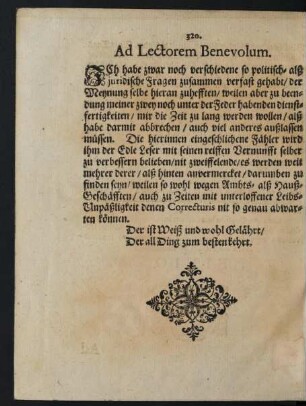 320.
Ad Lectorem Benevolum.
ICh habe zwar noch verschiedene so politisch- alß
juridische Fragen zusammen verfast gehabt/ der
Meynung selbe hieran zuhefften/ weilen aber zu been-
dung meiner zwey noch unter der Feder habenden dienst-
fertigkeiten/ mir die Zeit zu lang werden wollen/ alß
habe darmit abbrechen/ auch viel anderes außlassen
müssen. Die hierinnen eingeschlichene Fähler wird
ihm der Edle Leser mit seinen reiffen Vernunfft selber
zu verbessern belieben/ nit zweiffelende/ es werden weit
mehrer derer/ alß hinten anvermercket/ darumben zu
finden seyn/ weilen so wohl wegen Ambts- alß Hauß-
Geschäfften/ auch zu Zeiten mit unterloffener Leibs-
Unpäßligkeit denen Correcturis nit so genau abwar-
ten können.
Der ist Weiß und wohl Gelährt/
Der all Ding zum besten kehrt.